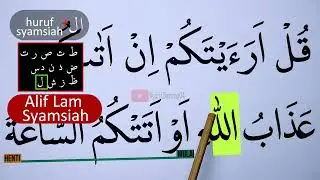 huruf
syamsiah
ال
ط ث ص ر ت
ض ذ ن د س
ظ ز ش ل
Alif Lam
Syamsiah
قُلْ اَرَءَيْتَكُمْ اِنْ اَتٰىكُمْ
عَذَابُ اللّٰهِ اَوْ اَتَتْكُمُ السَّاعَةُ
HENTI
MULA